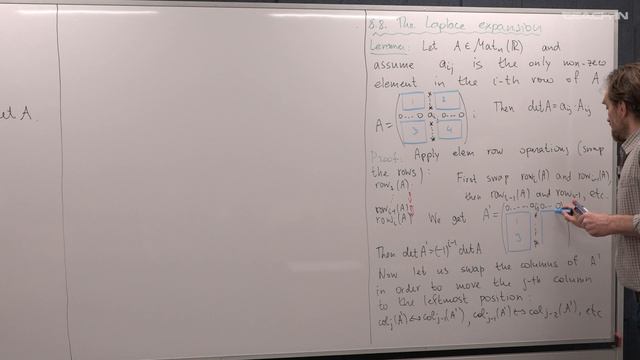 et A.
8.8. The Laplace expansion
Lemma: Let A ∈ Mat_n(ℝ) and
assume a_ij is the only non-zero
element in the i-th row of A
A = ( 1 2 0...0 a_ij 0 3 4 ) ; Then det A = a_ij · A_ij
Proof: Apply elem row operations (swap
the rows): First swap row_i(A) and row_i-1(A),
row_1(A) then row_i-1(A) and row_i-2, etc.
row_i-1(A)
row_i(A) We get A' = ( 0....0 a_ij 0...0 3
Then det A' = (-1)^i-1 det A
Now let us swap the columns of A'
in order to move the j-th column
to the leftmost position:
col_j(A') ↔ col_j-1(A'), col_j-1(A') ↔ col_j-2(A'), etc